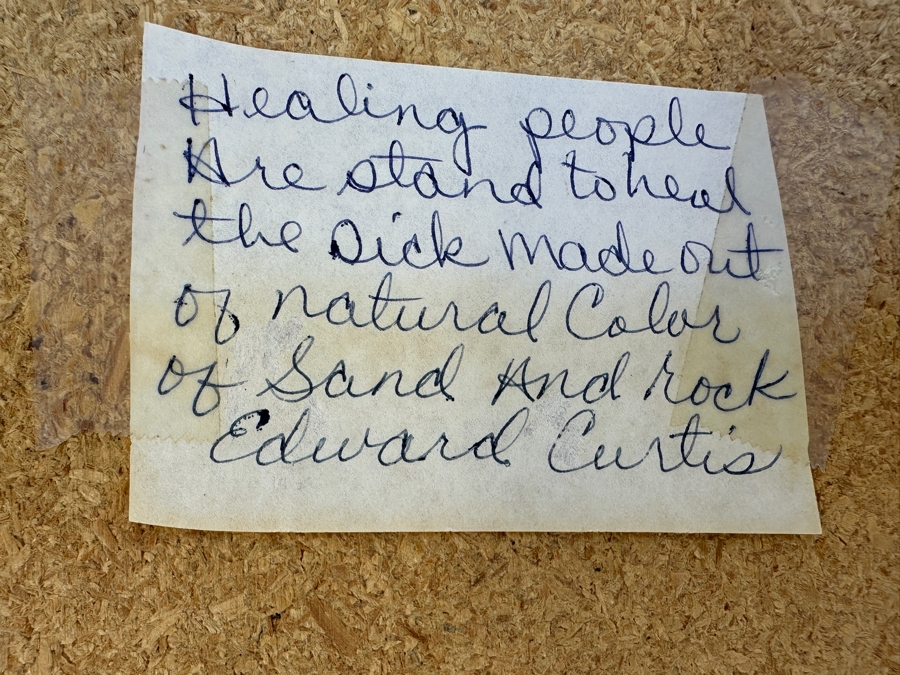 Healing people
Are stand to heal
the Sick made out
of natural Color
of Sand And rock
Edward Curtis